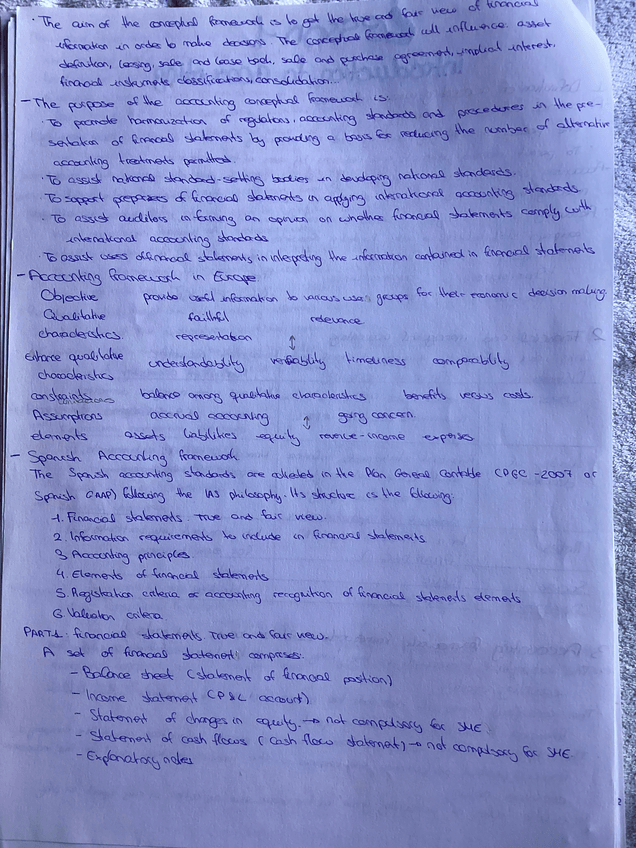 · The aim of the conceptual framework is to get the true and fair view of financial
information in order to make decisions. The conceptual framework will influence: asset
definition, leasing, sale and lease back, sale and purchase agreement, implicit interest,
financial instruments classifications, consolidation...
- The purpose of the accounting conceptual framework is:
· To promote harmonization of regulations, accounting standards and procedures in the pre-
sentation of financial statements by providing a basis for reducing the number of alternative
accounting treatments permitted.
· To assist national standard-setting bodies in developing national standards.
· To support preparers of financial statements in applying international accounting standards
· To assist auditors in forming an opinion on whether financial statements comply with
international accounting standards
· To assist users of financial statements in interpreting the information contained in financial statements
- Accounting framework in Europe
Objective provide useful information to various user groups for their economic decision making.
Qualitative faithful relevance
characteristics. representation ↕
Enhance qualitative understandability verifiability timeliness comparability
characteristics
constraints balance among qualitative characteristics benefits versus costs.
Assumptions accrual accounting ↕ going concern.
elements assets liabilities equity revenue-income expenses
- Spanish Accounting framework
The Spanish accounting standards are collected in the Plan General Contable (PGC-2007 or
Spanish GAAP) following the IAS philosophy. Its structure is the following:
1. Financial statements. True and fair view.
2. Information requirements to include in financial statements
3. Accounting principles
4. Elements of financial statements
5. Registration criteria or accounting recognition of financial statements elements
6. Valuation criteria.
PART1: financial statements. True and fair view.
A set of financial statement comprises:
- Balance sheet (statement of financial position)
- Income statement (P&L account)
- Statement of changes in equity → not compulsory for SME.
- Statement of cash flows (cash flow statement) → not compulsory for SME.
- Explanatory notes
2